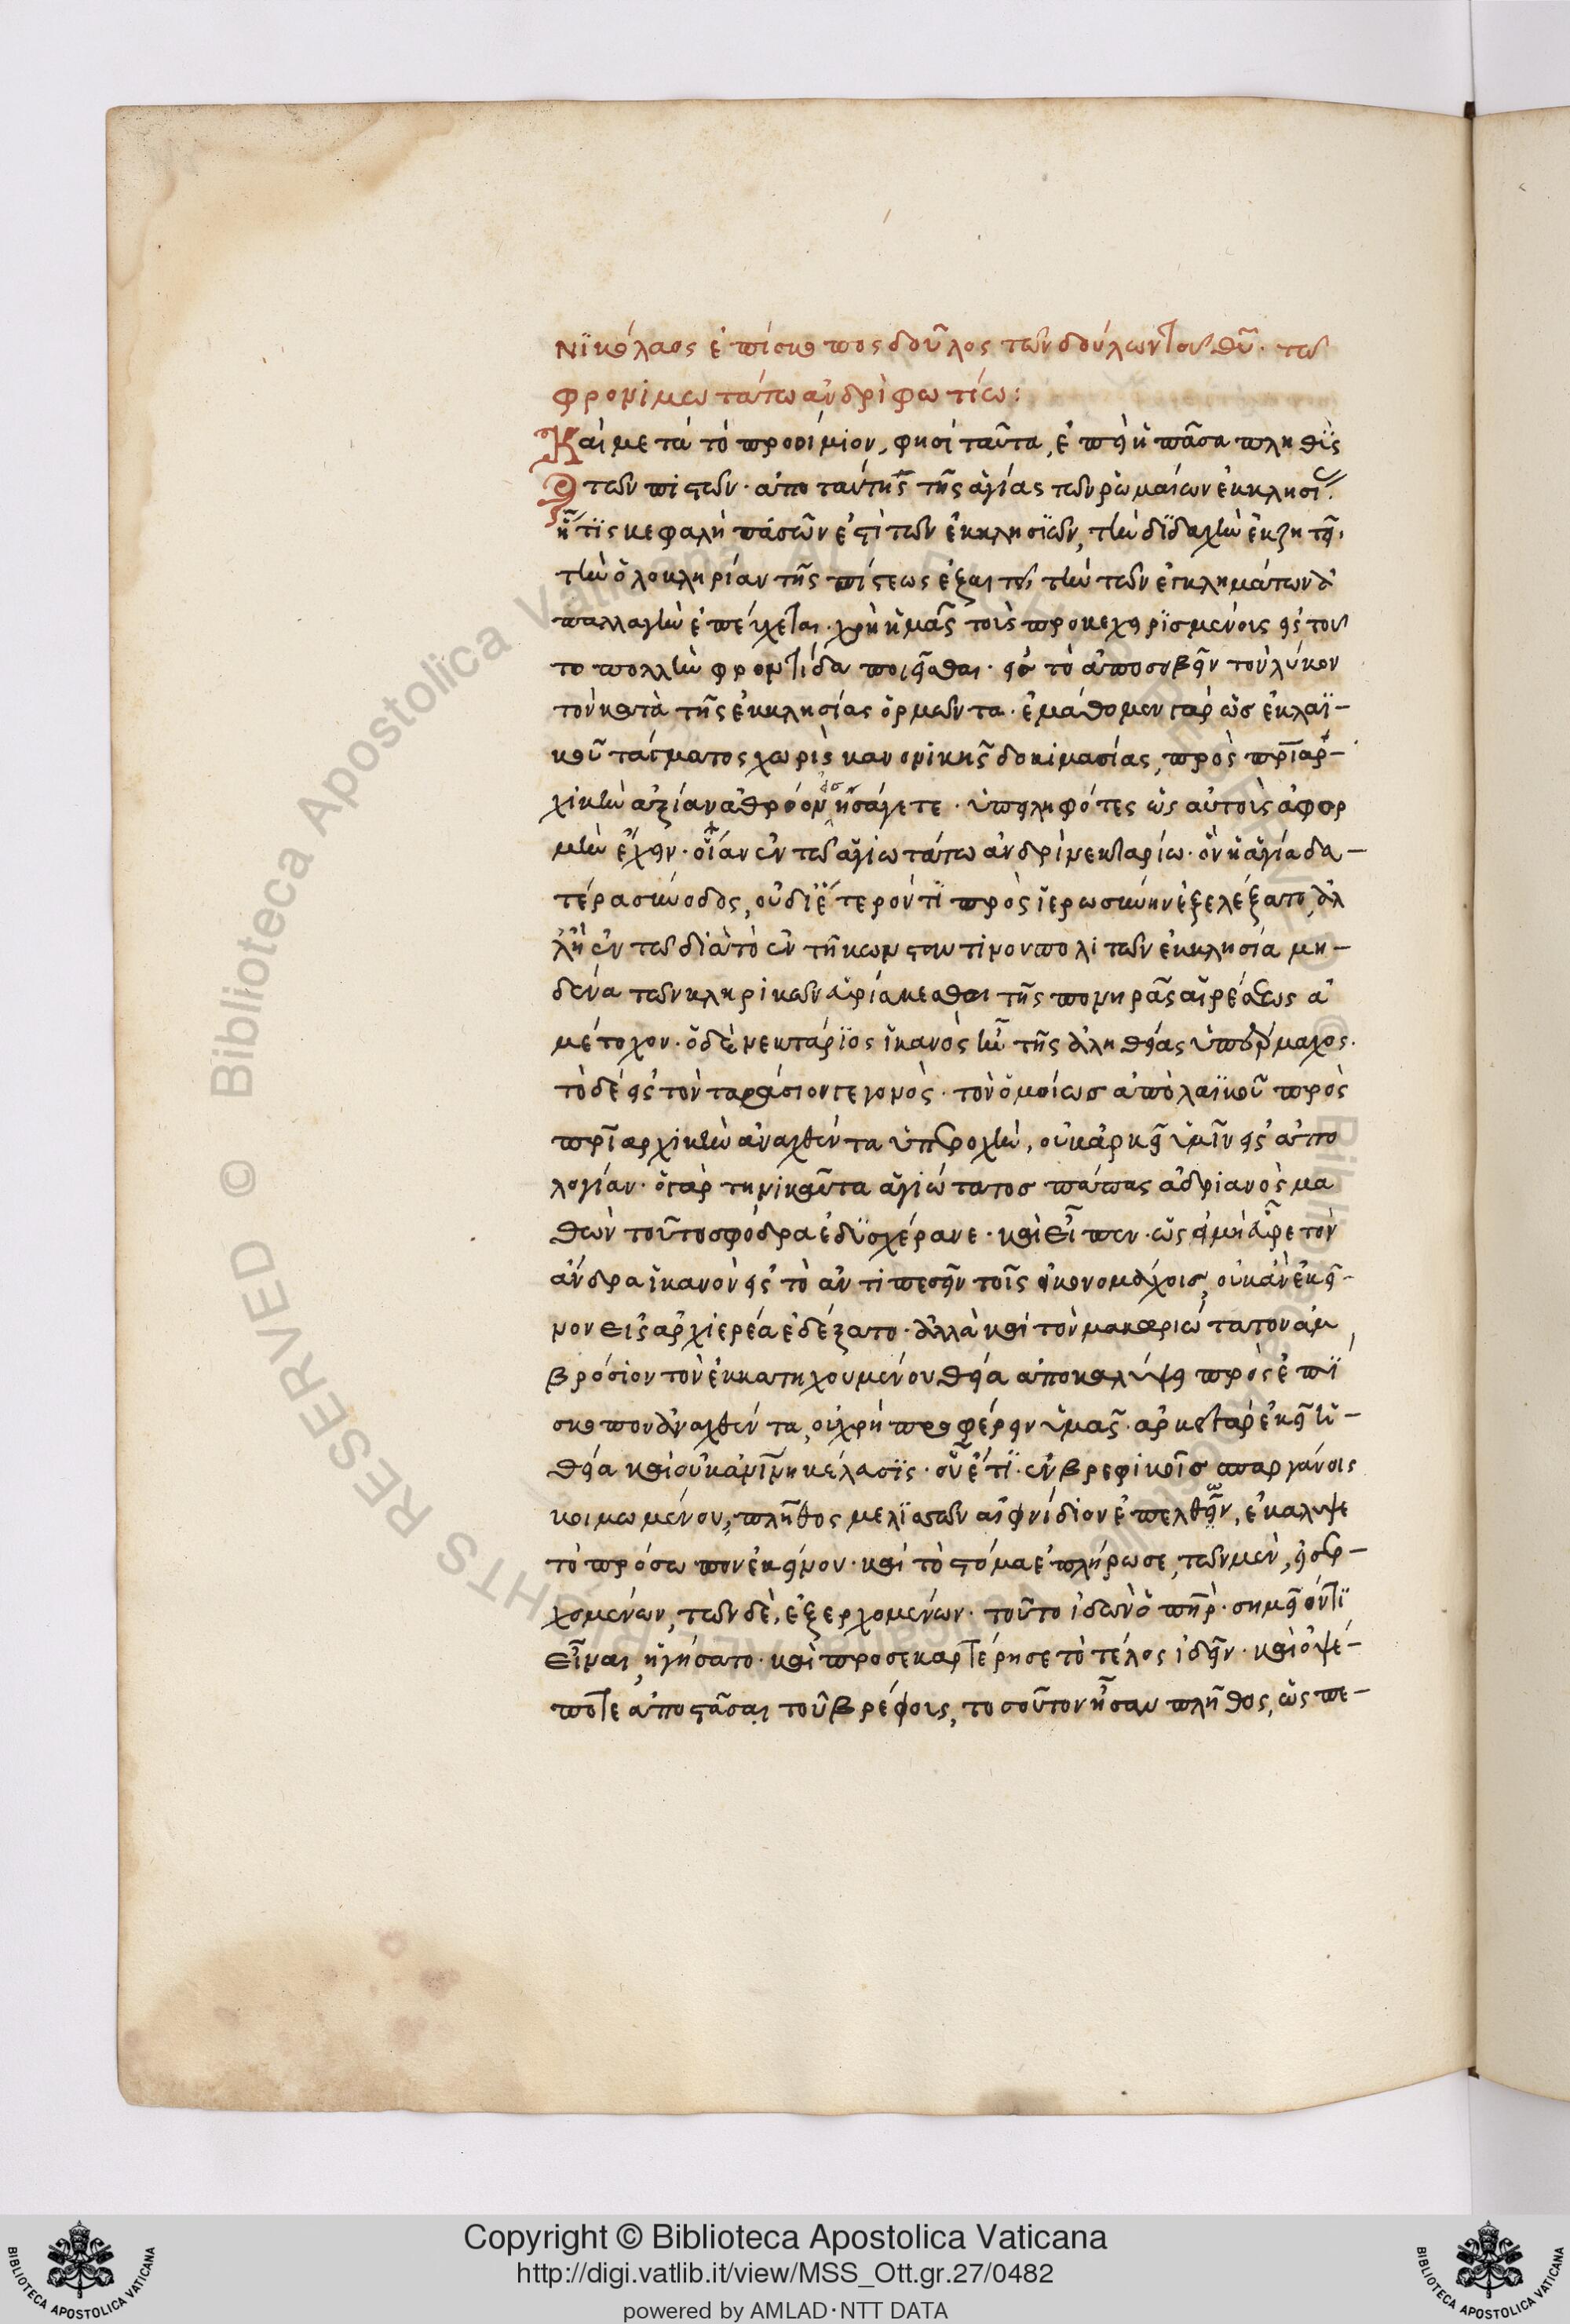 Νϊκόλαος ἐπίσκοπος δοῦλος τῶν δούλων τοῦ θῦ· τῶ
φρονιμωτάτω ἀνδρὶ φωτίω:
Καὶ μετὰ τὸ προοίμιον, φησὶ ταῦτα, ἐπεὶ ἡ πᾶσα πληθῒς
τῶν πιστῶν· ἀπο ταύτης τῆς ἁγίας τῶν ῥωμαίων ἐκκλησί
ἥτϊς κεφαλὴ πάσῶν ἐστὶ τῶν ἐκκλησϊῶν, τὴν δϊδαχὴν ἐκζητεῖ,
τὴν ὁλοκληρίαν τῆς πίστεως ἐξαιτεῖ, τὴν τῶν ἐγκλημάτων ἀ
παλλαγὴν ἐπεύχεται· χρὴ ἡμᾶς τοὶς προκεχειρϊσμένοις εἰς τοῦ
το πολλὴν φροντίδα ποιεῖσθαι· εἰς τὸ ἀποσοβεῖν τὸν λύκον
τὸν κατὰ τῆς ἐκκλησίας ὁρμῶντα· ἐμάθομεν γὰρ ὡσ ἐκ λαϊ-
κοῦ τάγματος χωρὶς κανονικῆς δοκιμασίας, πρὸς πρῖαρ-
χικὴν ἀξίαν ἀθρόον εἰσάγετε· ὑπειληφότες ὡς αὐτοὶς ἀφορ
μὴν ἔχειν· οἵαν ἐν τῶ ἁγίω τάπω ἀνδρὶ νεκταρίω· ὃν ἡ ἁγία δα-
τέρα σύνοδος, οὐ δι ἕτερόν τϊ πρὸς ἱερωσύνην ἐξελέξατο, ἀλ
λ ἢ ἐν τῶ διὰ τὸ ἐν τῆ κωνσταντινουπολιτῶν ἐκκλησία μη-
δένα τῶν κληρικῶν εὑρίσκεσθαι τῆς πονηρᾶς αἱρέσεως ἀ
μέτοχον· ὁ δὲ νεκτάρϊος ἱκανὸς ἦν τῆς ἀληθείας ὑπέρμαχος.
τὸ δὲ εἰς τὸν ταράσιον γεγονὸς· τὸν ὁμοίωσ ἀπὸ λαϊκοῦ πρὸς
πρῖαρχικὴν ἀναχθέντα ὑπεροχὴν, οὐκ ἀρκεῖ ὑμῖν εἰς ἀπο
λογίαν· ὁ γὰρ τηνικαῦτα ἁγιώτατοσ πάπας ἀδριανὸς μα
θὼν τοῦτο σφόδρα ἐδϋσχέρανε· καὶ εἶπεν· ὡς εἰ μὴ εὗρε τὸν
ἄνδρα ἱκανὸν εἰς τὸ ἀντιπεσεῖν τοῖς εἰκονομάχοισ, οὐκ ἂν ἐκεῖ-
νον εἰς ἀρχιερέα ἐδέξατο· ἀλλὰ καὶ τὸν μακαριώτατον ἀμ
βρόσιον τὸν ἐκ κατηχουμένου θεία ἀποκαλύψει πρὸς ἐπϊ
σκοπον ἀναχθέντα, οὐ χρὴ προφέρειν ὑμᾶς· ἀρκεῖ γὰρ ἐκεῖ ἡ-
θεία καὶ οὐκ ἀνθρωπίνη κέλευσϊς· οὗ ἔτϊ· ἐν βρεφικοῖσ σπαργάνοις
κοιμωμένου, πλῆθος μελϊσσῶν αἰφνίδιον ἐπελθεῖν, ἐκάλυψε
τὸ πρόσωπον ἐκείνου· καὶ τὸ στόμα ἐπλήρωσε, τῶν μὲν, εἰσερ-
χομένων, τῶν δὲ, ἐξερχομένων· τοῦτο ἰδὼν ὁ πηρ· σημεῖόν τϊ
εἶναι, ἡγήσατο· καὶ προσεκαρτέρησε τὸ τέλος ἰδεῖν· καὶ ὀψέ-
ποτε ἀποστᾶσαι τοῦ βρέφους, τοσοῦτον ἦσαν πλῆθος, ὡς πε-